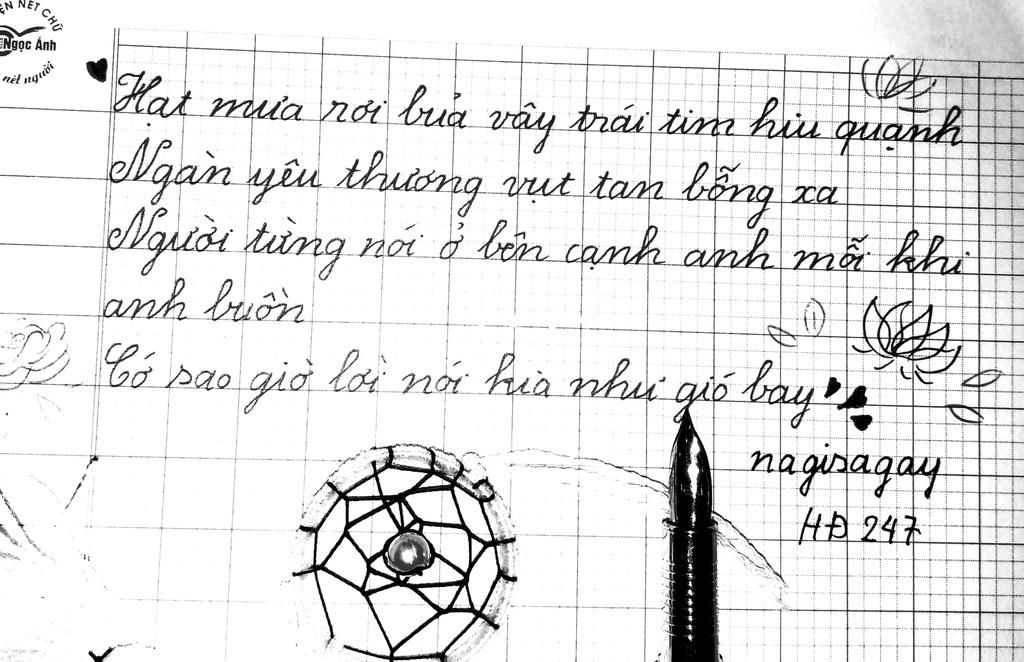 ỆN NÉT CHỮ
Ngọc Ánh
nét người
Hạt mưa rơi bủa vây trái tim hiu quạnh
Ngàn yêu thương vụt tan bỗng xa
Người từng nói ở bên cạnh anh mỗi khi
anh buồn
Cớ sao giờ lời nói kia như gió bay
nagisagay
HĐ 247